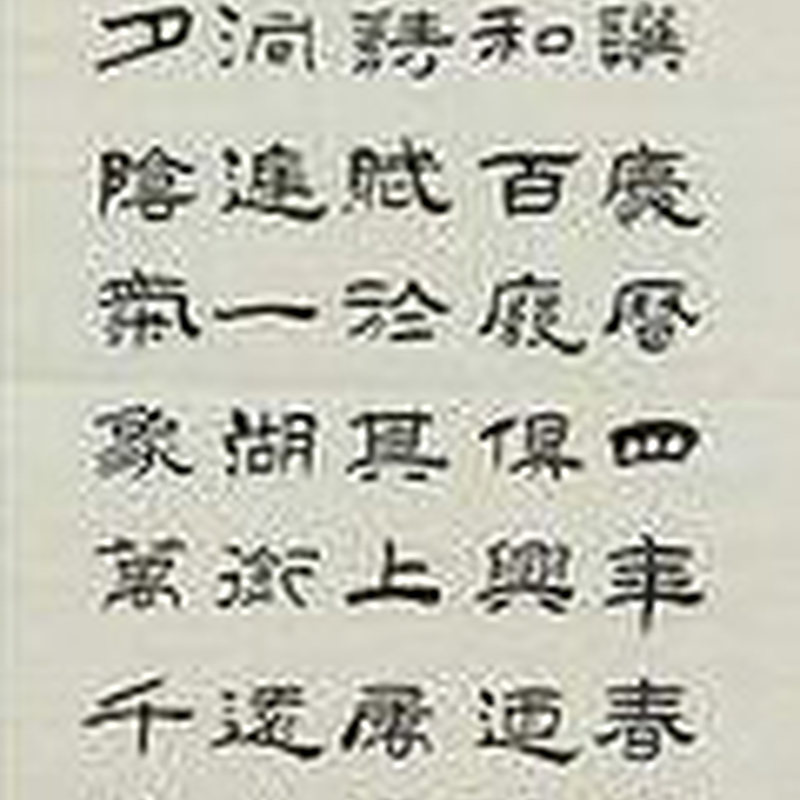 譔慶曆四年春
和百廢俱興迺
詩賦於其上屬
洞庭一湖銜遠
夕陰氣象萬千